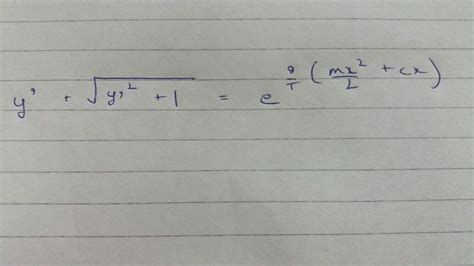 y' + √(y'² + 1) = e^(g/T (mx²/2 + cx))